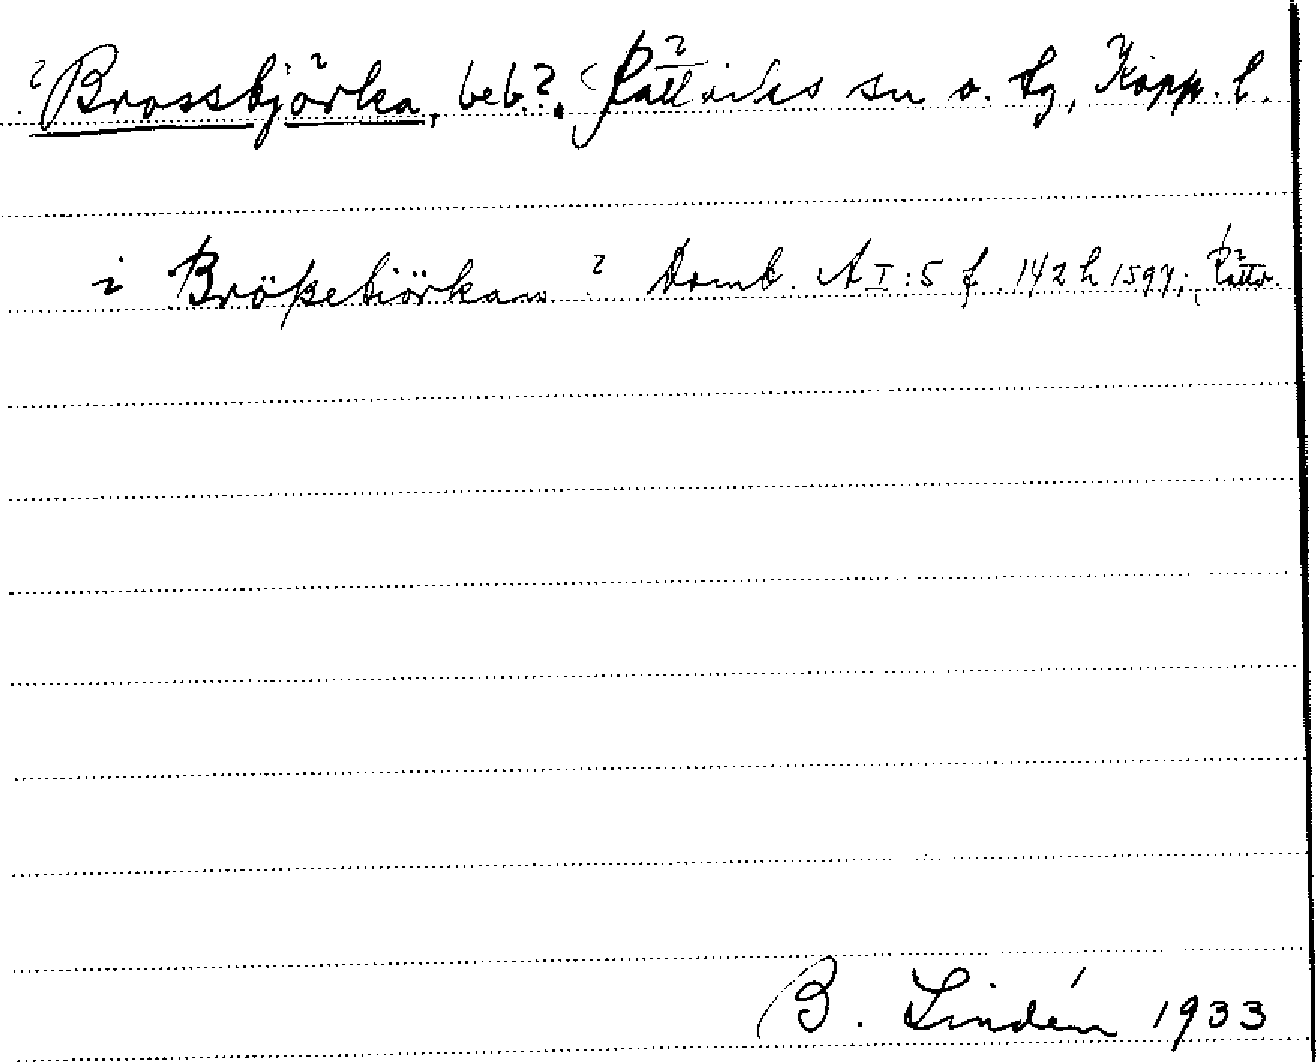 ? Brossbjörka, beb.?, Rättviks sn o. tg, Kopp. l.
i Brößebiörkan ? Domb. A I:5 f. 142 h 1597; Rättv.
B. Lindén 1933